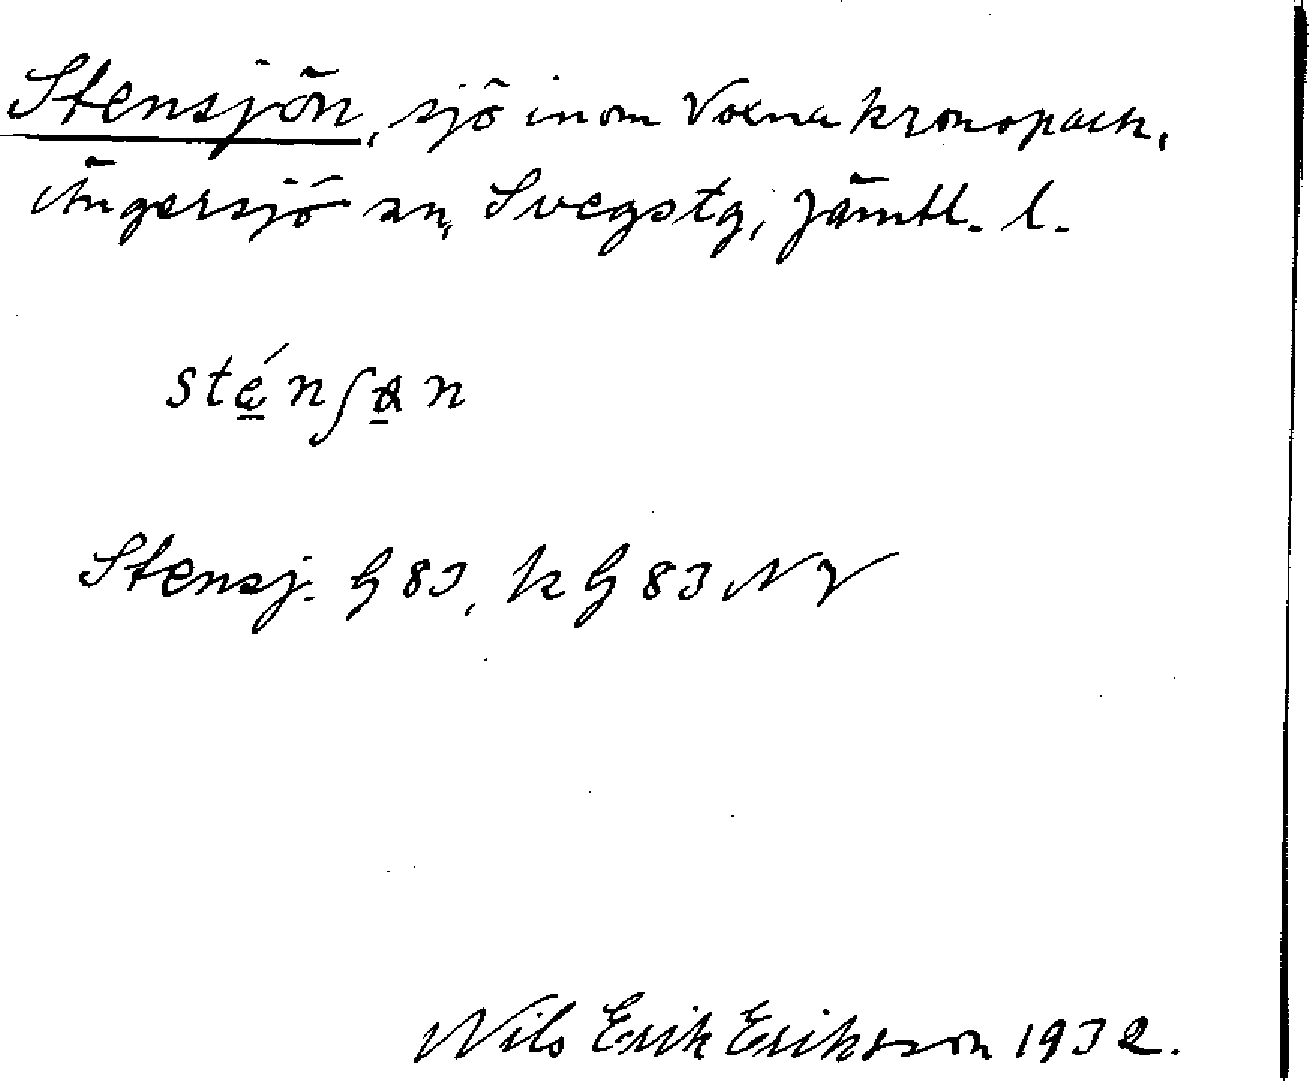 Stensjön, sjö inom Voxna kronopark,
Ängersjö sn, Svegs tg, Jämtl. l.
Stensj. G 83, k G 83 NV
Nils Erik Eriksson 1932.